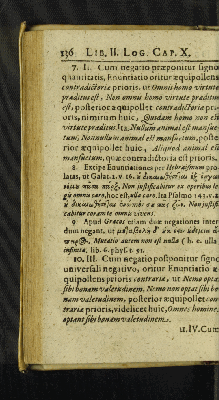 136 LIB. II. LOG. CAP. X.
7. II. Cum negatio præponitur signo
quantitatis, Enuntiatio oritur æquipollens
contradictoria prioris. ut Omnis homo virtute
præditus est, Non omnis homo virtute præditus
est, posterior æquipollet contradictoriæ pri-
oris, nimirum huic, Quidam homo non est
virtute præditus. Ita Nullum animal est mansue-
tum, Nonnullum animal est mansuetum, poste-
rior æquipollet huic, Aliquod animal est
mansuetum, quæ contradictoria est prioris.
8. Excipe Enuntiationes per Hebræismum pro-
latas, ut Galat. 2. v. 16.
Non justificabitur ex operibus le-
gis omnis caro, hoc est, nulla caro. Ita Psalmo 143. v. 2.
Non justifi-
cabitur coram te omnis vivens.
9. Apud Græcos etiam duæ negationes inter-
dum negant, ut
Mutatio autem non est nulla (h. e. ulla
infinita, lib. 6. phys. t. 91.
10. III. Cum negatio postponitur signo
universali negativo, oritur Enuntiatio æ-
quipollens prioris contraria, ut Nemo optat
sibi bonam valetudinem. Nemo non optat sibi bo-
nam valetudinem, posterior æquipollet con-
trariæ prioris, videlicet huic, Omnes homines
optant sibi bonam valetudinem.
11. IV. Cum